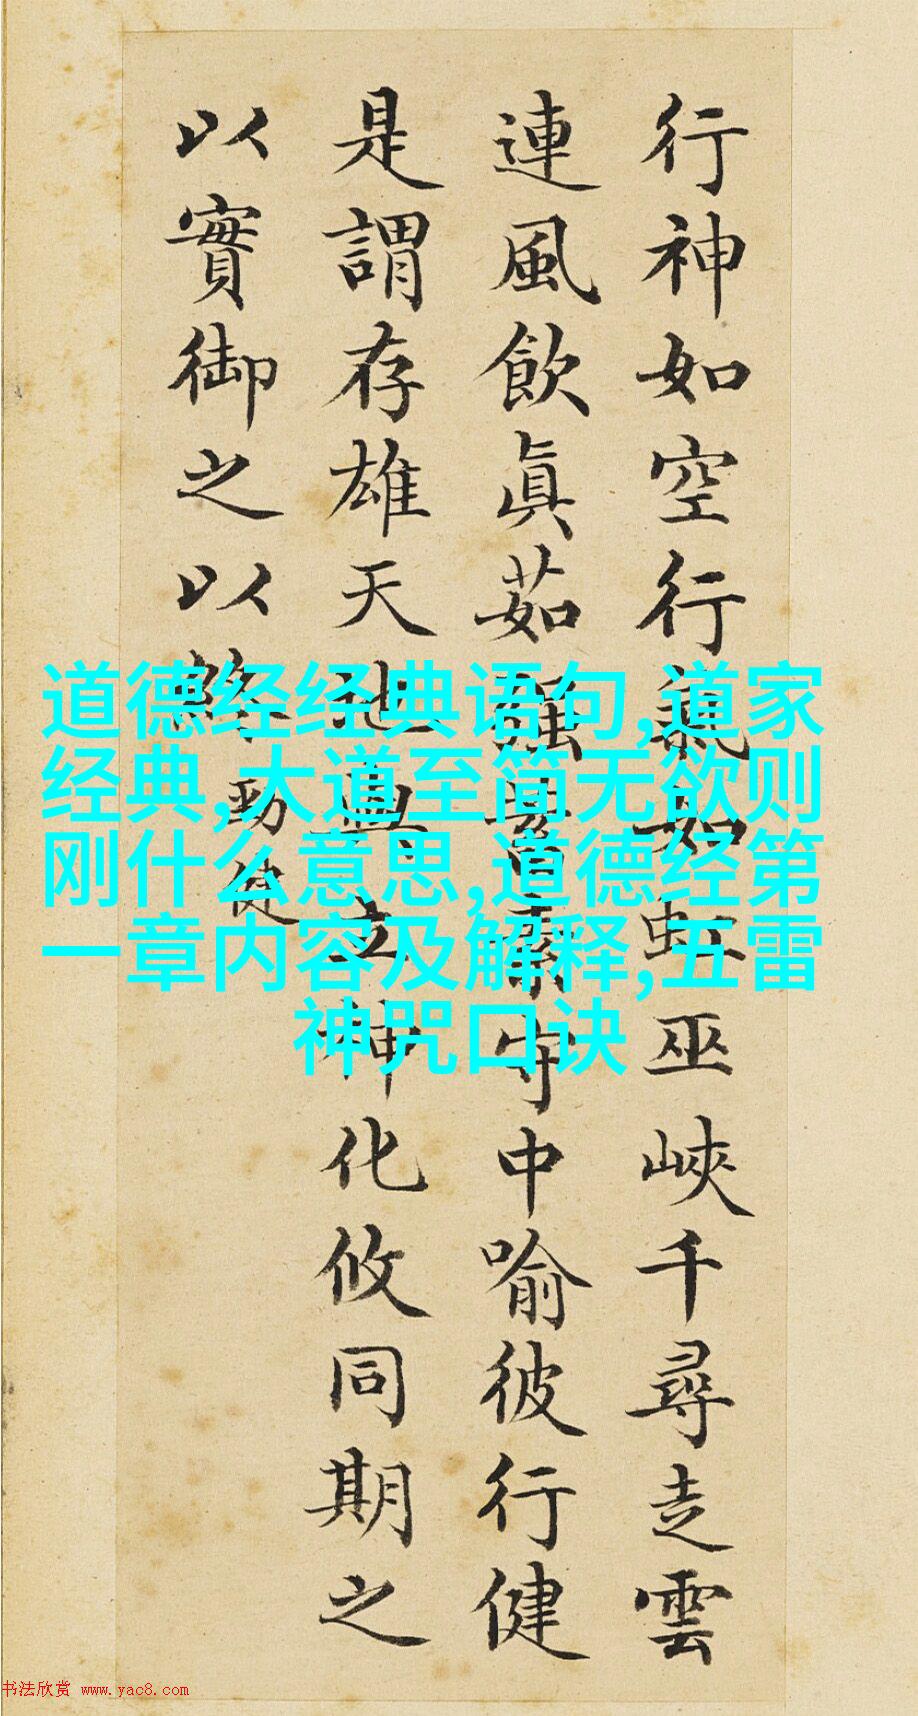 行神如空行氣如虹巫峽千尋走雲
連風飲眞茹強蓄素守中喻彼行健
是謂存雄天地與立神化攸同期之
以實御之以終
勁健
道德经经典语句,道家
经典,大道至简无欲则
刚什么意思,道德经第
一章内容及解释,五雷
神咒口诀
书法欣赏 www.yac8.com